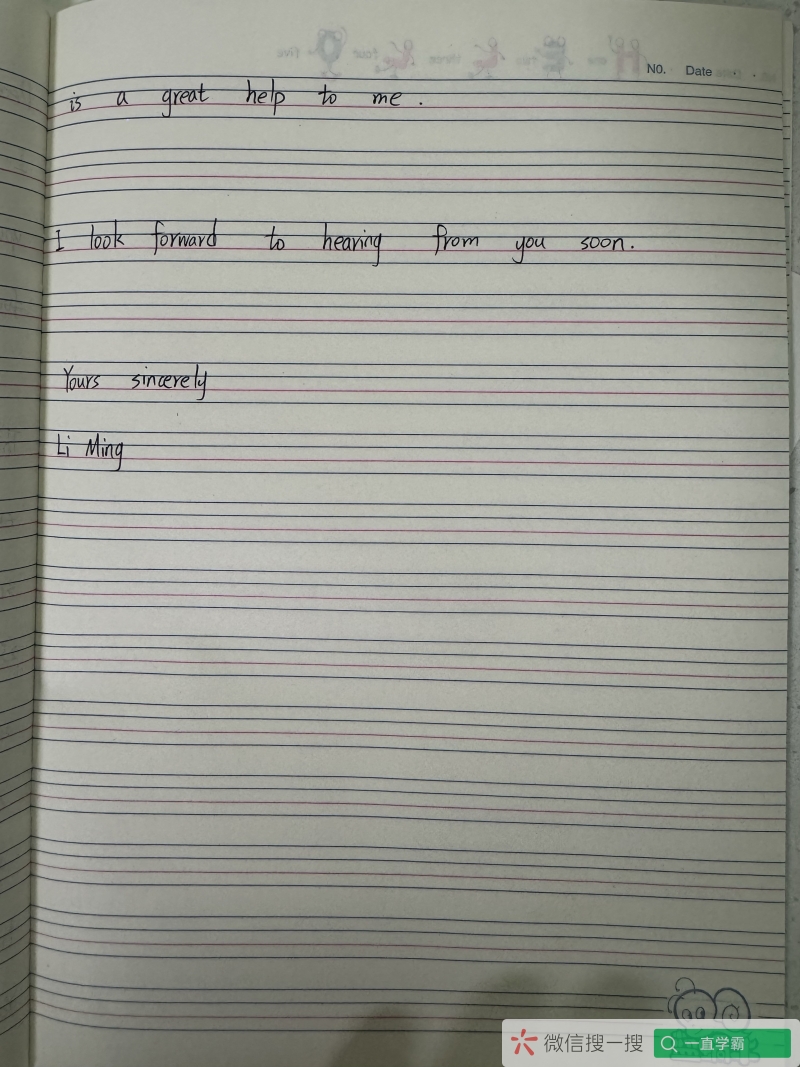 N0. Date
is a great help to me.
I look forward to hearing from you soon.
Yours sincerely
Li Ming
微信搜一搜 一直学霸